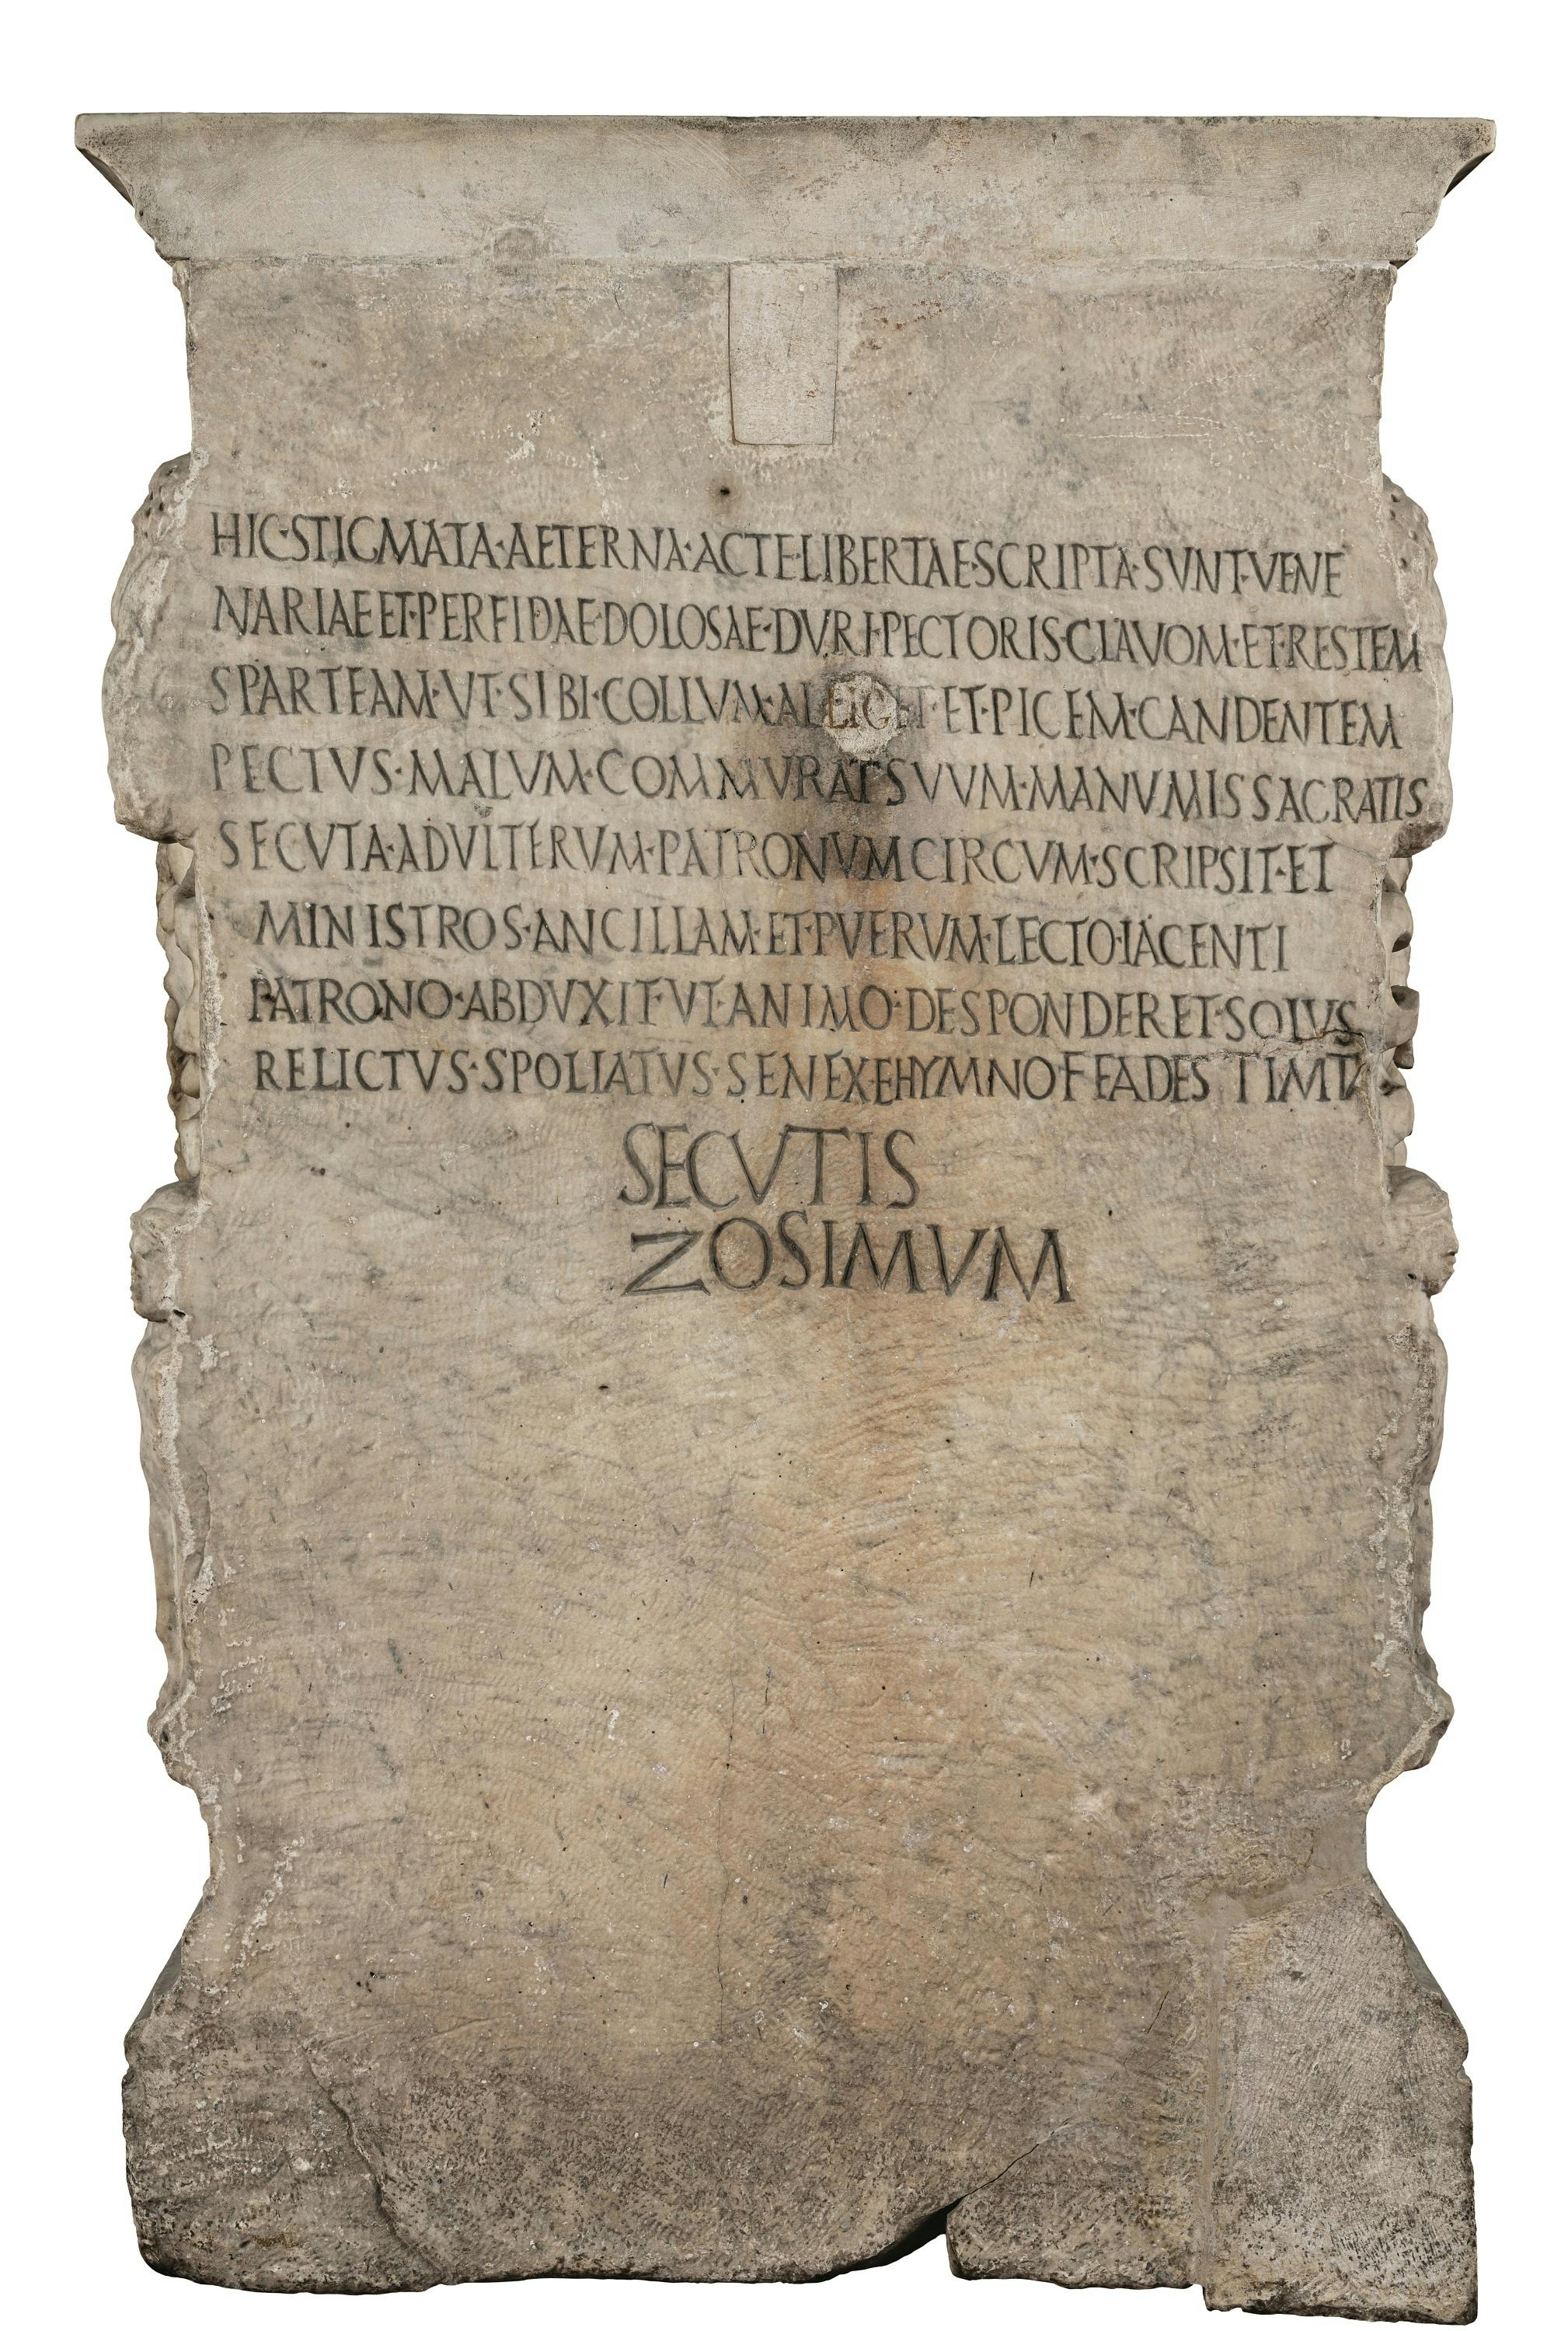 HIC·STIGMATA·AETERNA·ACTE·LIBERTAE·SCRIPTA·SVNT·VENE
NARIAE ET·PERFIDAE·DOLOSAE·DVRI·PECTORIS·CLAVOM·ET·RESTEM
SPARTEAM·VT·SIBI·COLLVM·ALLIGET·ET·PICEM·CANDENTEM
PECTVS·MALVM·COMMVRAT SVVM·MANVMISSA GRATIS
SECVTA·ADVLTERVM·PATRONVM CIRCVM·SCRIPSIT·ET
MINISTROS·ANCILLAM·ET·PVERVM·LECTO·IACENTI
PATRONO·ABDVXIT·VT·ANIMO·DESPONDERET·SOLVS
RELICTVS·SPOLIATVS·SENEX·E HYMNO FEADES TIMTA
SECVTIS
ZOSIMVM